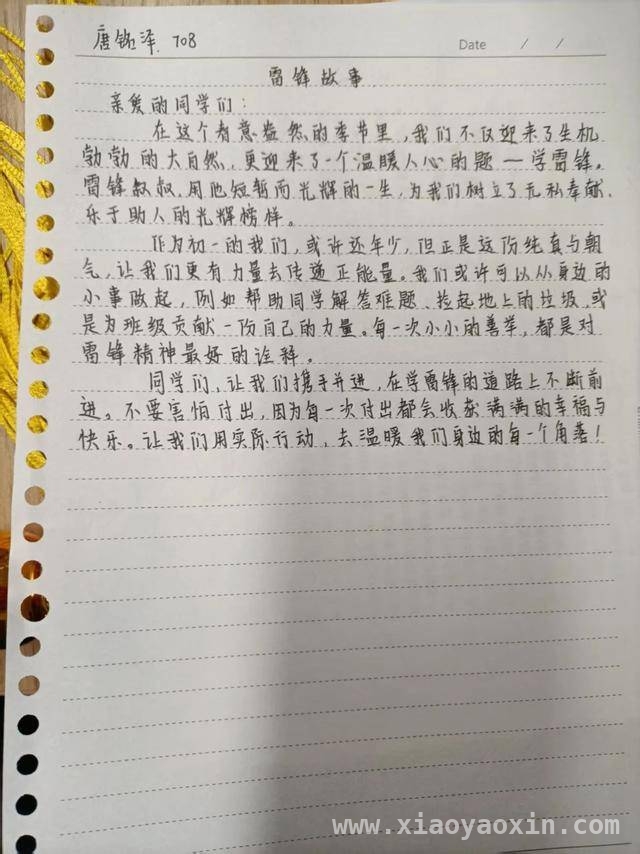 唐铭泽. 708
Date / /
雷锋故事
亲爱的同学们：
在这个春意盎然的季节里，我们不仅迎来了生机
勃勃的大自然，更迎来了一个温暖人心的题一学雷锋。
雷锋叔叔，用他短暂而光辉的一生，为我们树立了无私奉献、
乐于助人的光辉榜样。
作为初一的我们，或许还年少，但正是这份纯真与朝
气，让我们更有力量去传递正能量。我们或许可以从身边的
小事做起，例如帮助同学解答难题、捡起地上的垃圾，或
是为班级贡献一份自己的力量。每一次小小的善举，都是对
雷锋精神最好的诠释。
同学们，让我们携手并进，在学雷锋的道路上不断前
进。不要害怕付出，因为每一次付出都会收获满满的幸福与
快乐。让我们用实际行动，去温暖我们身边的每一个角落！
www.xiaoyaoxin.com